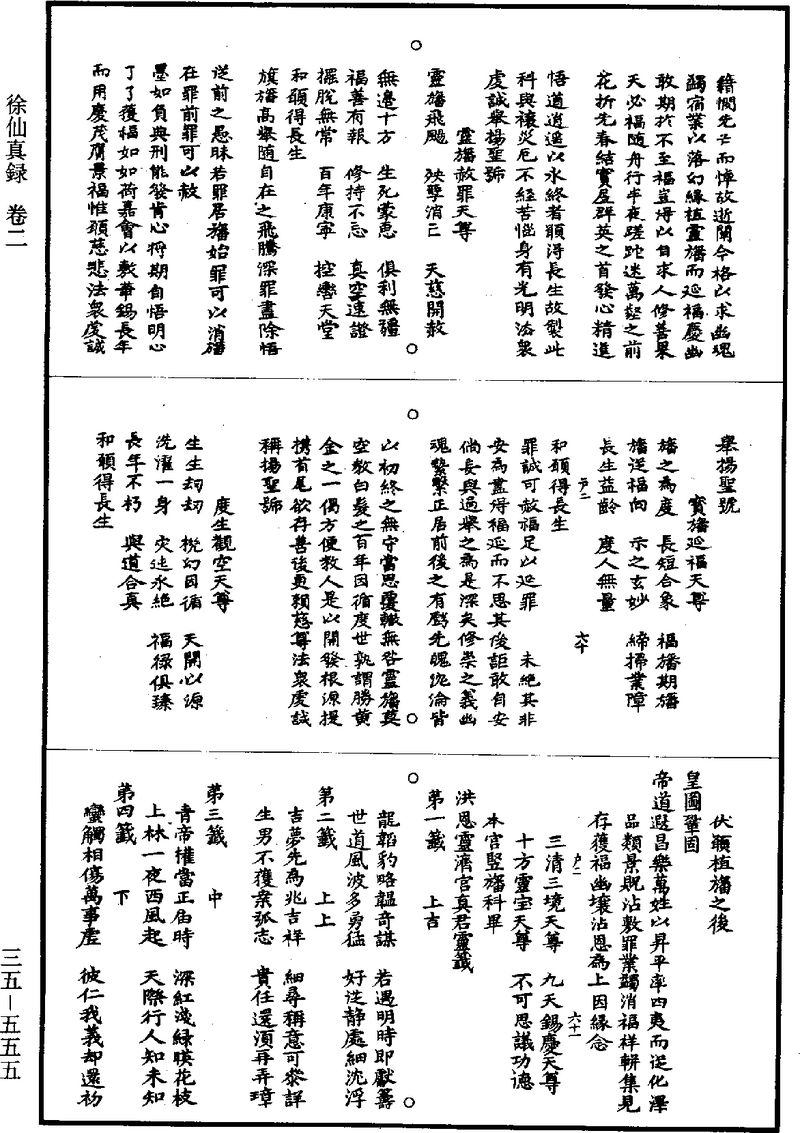 徐仙真録 卷二
籍憫先亡而悼故逝開今格以求幽魂
蠲宿業以落幻緣植靈旛而延福慶幽
敢期於不至福豈得以自求人修善果
天必福隨舟行半夜蹉跎迷萬壑之前
花折先春結實居群英之首發心精進
悟道逍遥以永終者願得長生故製此
科與禳災厄不經苦惱身有光明法衆
虔誠舉揚聖號
靈旛赦罪天尊
靈旛飛颺 殃孽消亡 天慈開赦
無邊十方 生死蒙恵 俱利無疆
福善有報 修持不忘 真空速證
擺脫無常 百年康寧 控鸞天堂
和願得長生
旗旛高舉随自在之飛騰深罪盡除悟
從前之愚昧若罪居旛始罪可以消旛
在罪前罪可以赦
墨如負典刑能發肯心將期自悟明心
了了獲福如如荷嘉會以敷華錫長年
而用慶茂膺景福惟願慈悲法衆虔誠
舉揚聖號
寳旛延福天尊
旛之爲度 長短合象 福旛期旛
旛逆福向 示之玄妙 締掃業障
長生益齡 度人無量
和願得長生
罪誠可赦福足以延罪 未絶其非
安爲盡得福延而不思其後詎敢自安
倘妄與過舉之爲是深矣修崇之義幽
魂繫繫正居前後之有愆先魄沈淪皆
以初終之無守當思覆轍無咎靈旛莫
空教白髮之百年因循度世孰謂勝黄
金之一偈方便教人是以開發根源提
携首尾欲存善後更頼慈尊法衆虔誠
稱揚聖號
度生觀空天尊
生生刼刼 梲幻因循 天開心源
洗濯一身 灾迍永絶 福祿俱臻
長年不朽 與道合真
和願得長生
伏願植旛之後
皇圖鞏固
帝道遐昌樂萬姓以昇平率四夷而從化澤
品類景貺沾敷罪業蠲消福祥駢集見
存獲福幽壤沾恩爲上因緣念
三清三境天尊 九天錫慶天尊
十方靈宝天尊 不可思議功德
本宫竪旛科畢
洪恩靈濟宫真君靈籤
第一籤 上吉
龍韜豹略韞奇謀 若遇明時即獻籌
世道風波多勇猛 好從静處細沈浮
第二籤 上上
吉夢先爲兆吉祥 細尋稱意可叅詳
生男不獲案弧志 貴任還須再弄璋
第三籤 中
青帝權當正届時 深紅淺緑暎花枝
上林一夜西風起 天際行人知未知
第四籤 下
蠻觸相傷萬事虚 彼仁我義却還初
三五—五五五